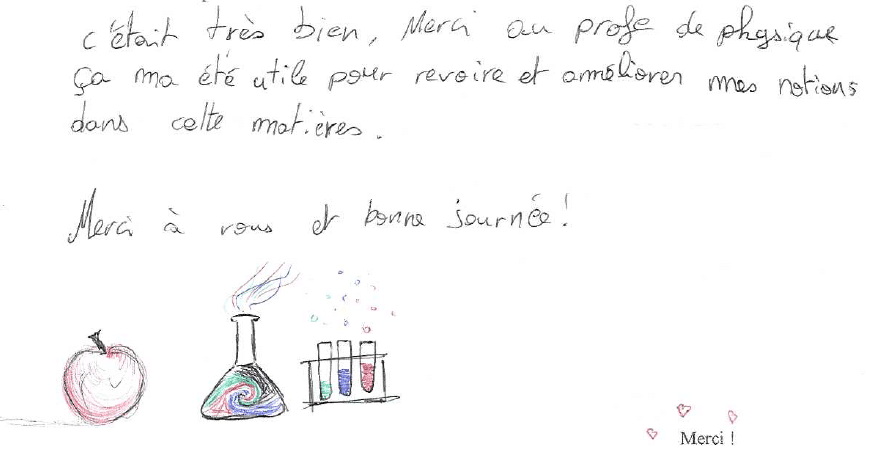 c'était très bien, Merci au profe de physique
ça ma été utile pour revoire et améliorer mes notions
dans cette matières.
Merci à vous et bonne journée!
Merci !